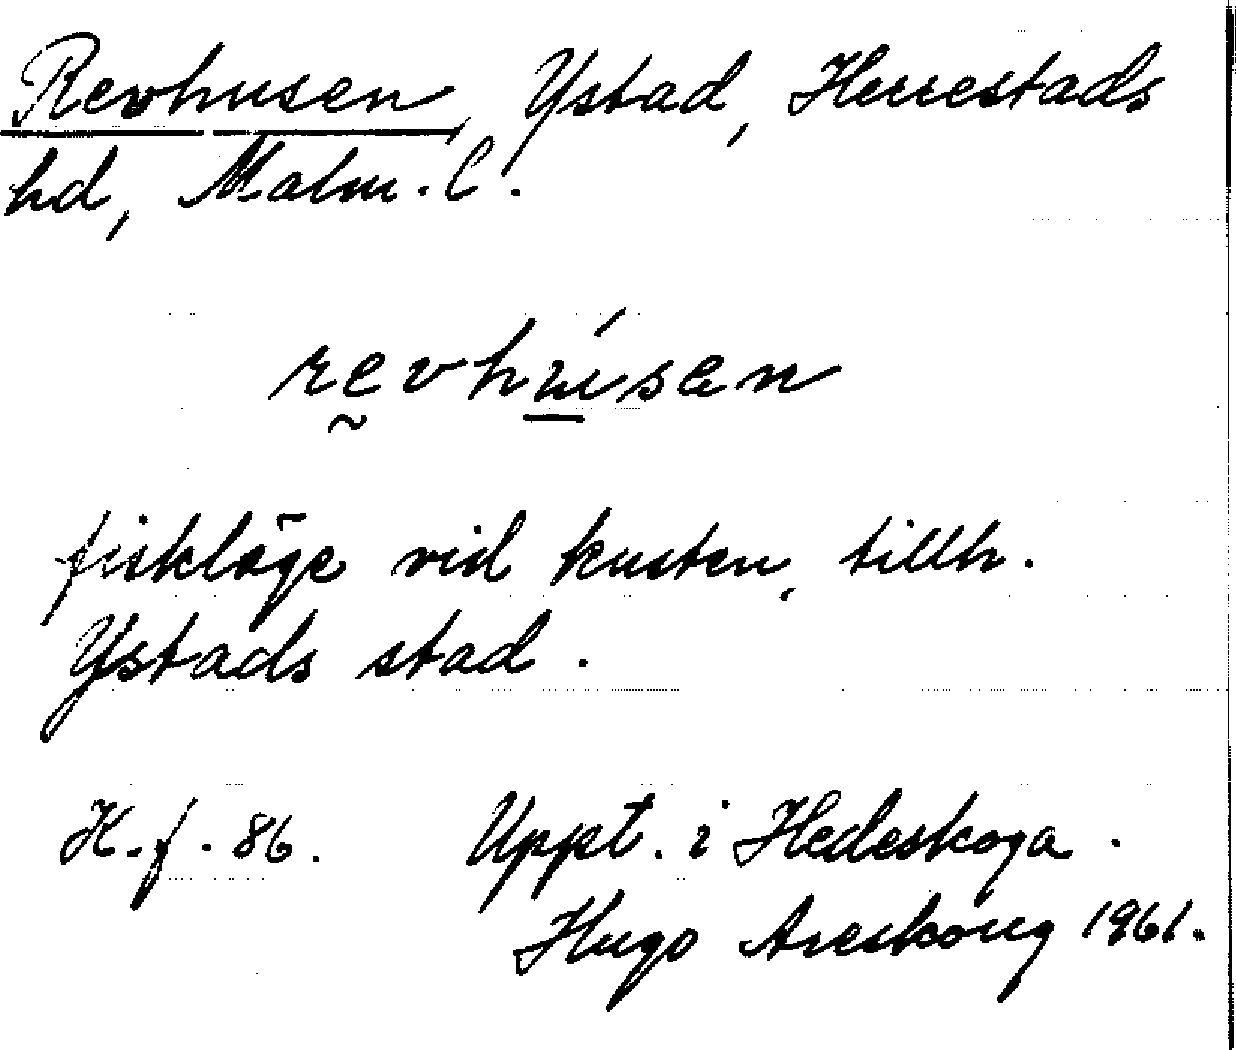 Revhusen, Ystad, Herrestads
hd, Malm. l.
rḛvhú̲sen
fiskläge vid kusten, tillh.
Ystads stad.
K.f. 86. Uppt. i Hedeskoga.
Hugo Areskoug 1961.